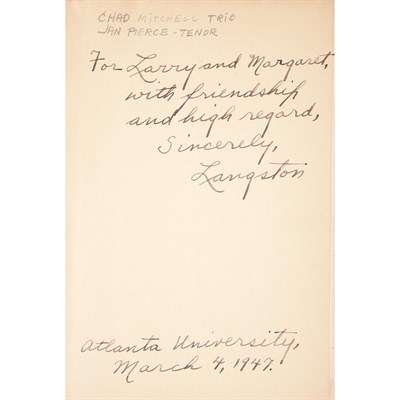 CHAD MITCHELL TRIO
JAN PIERCE - TENOR
For Larry and Margaret,
with friendship
and high regard,
Sincerely,
Langston
Atlanta University,
March 4, 1947.